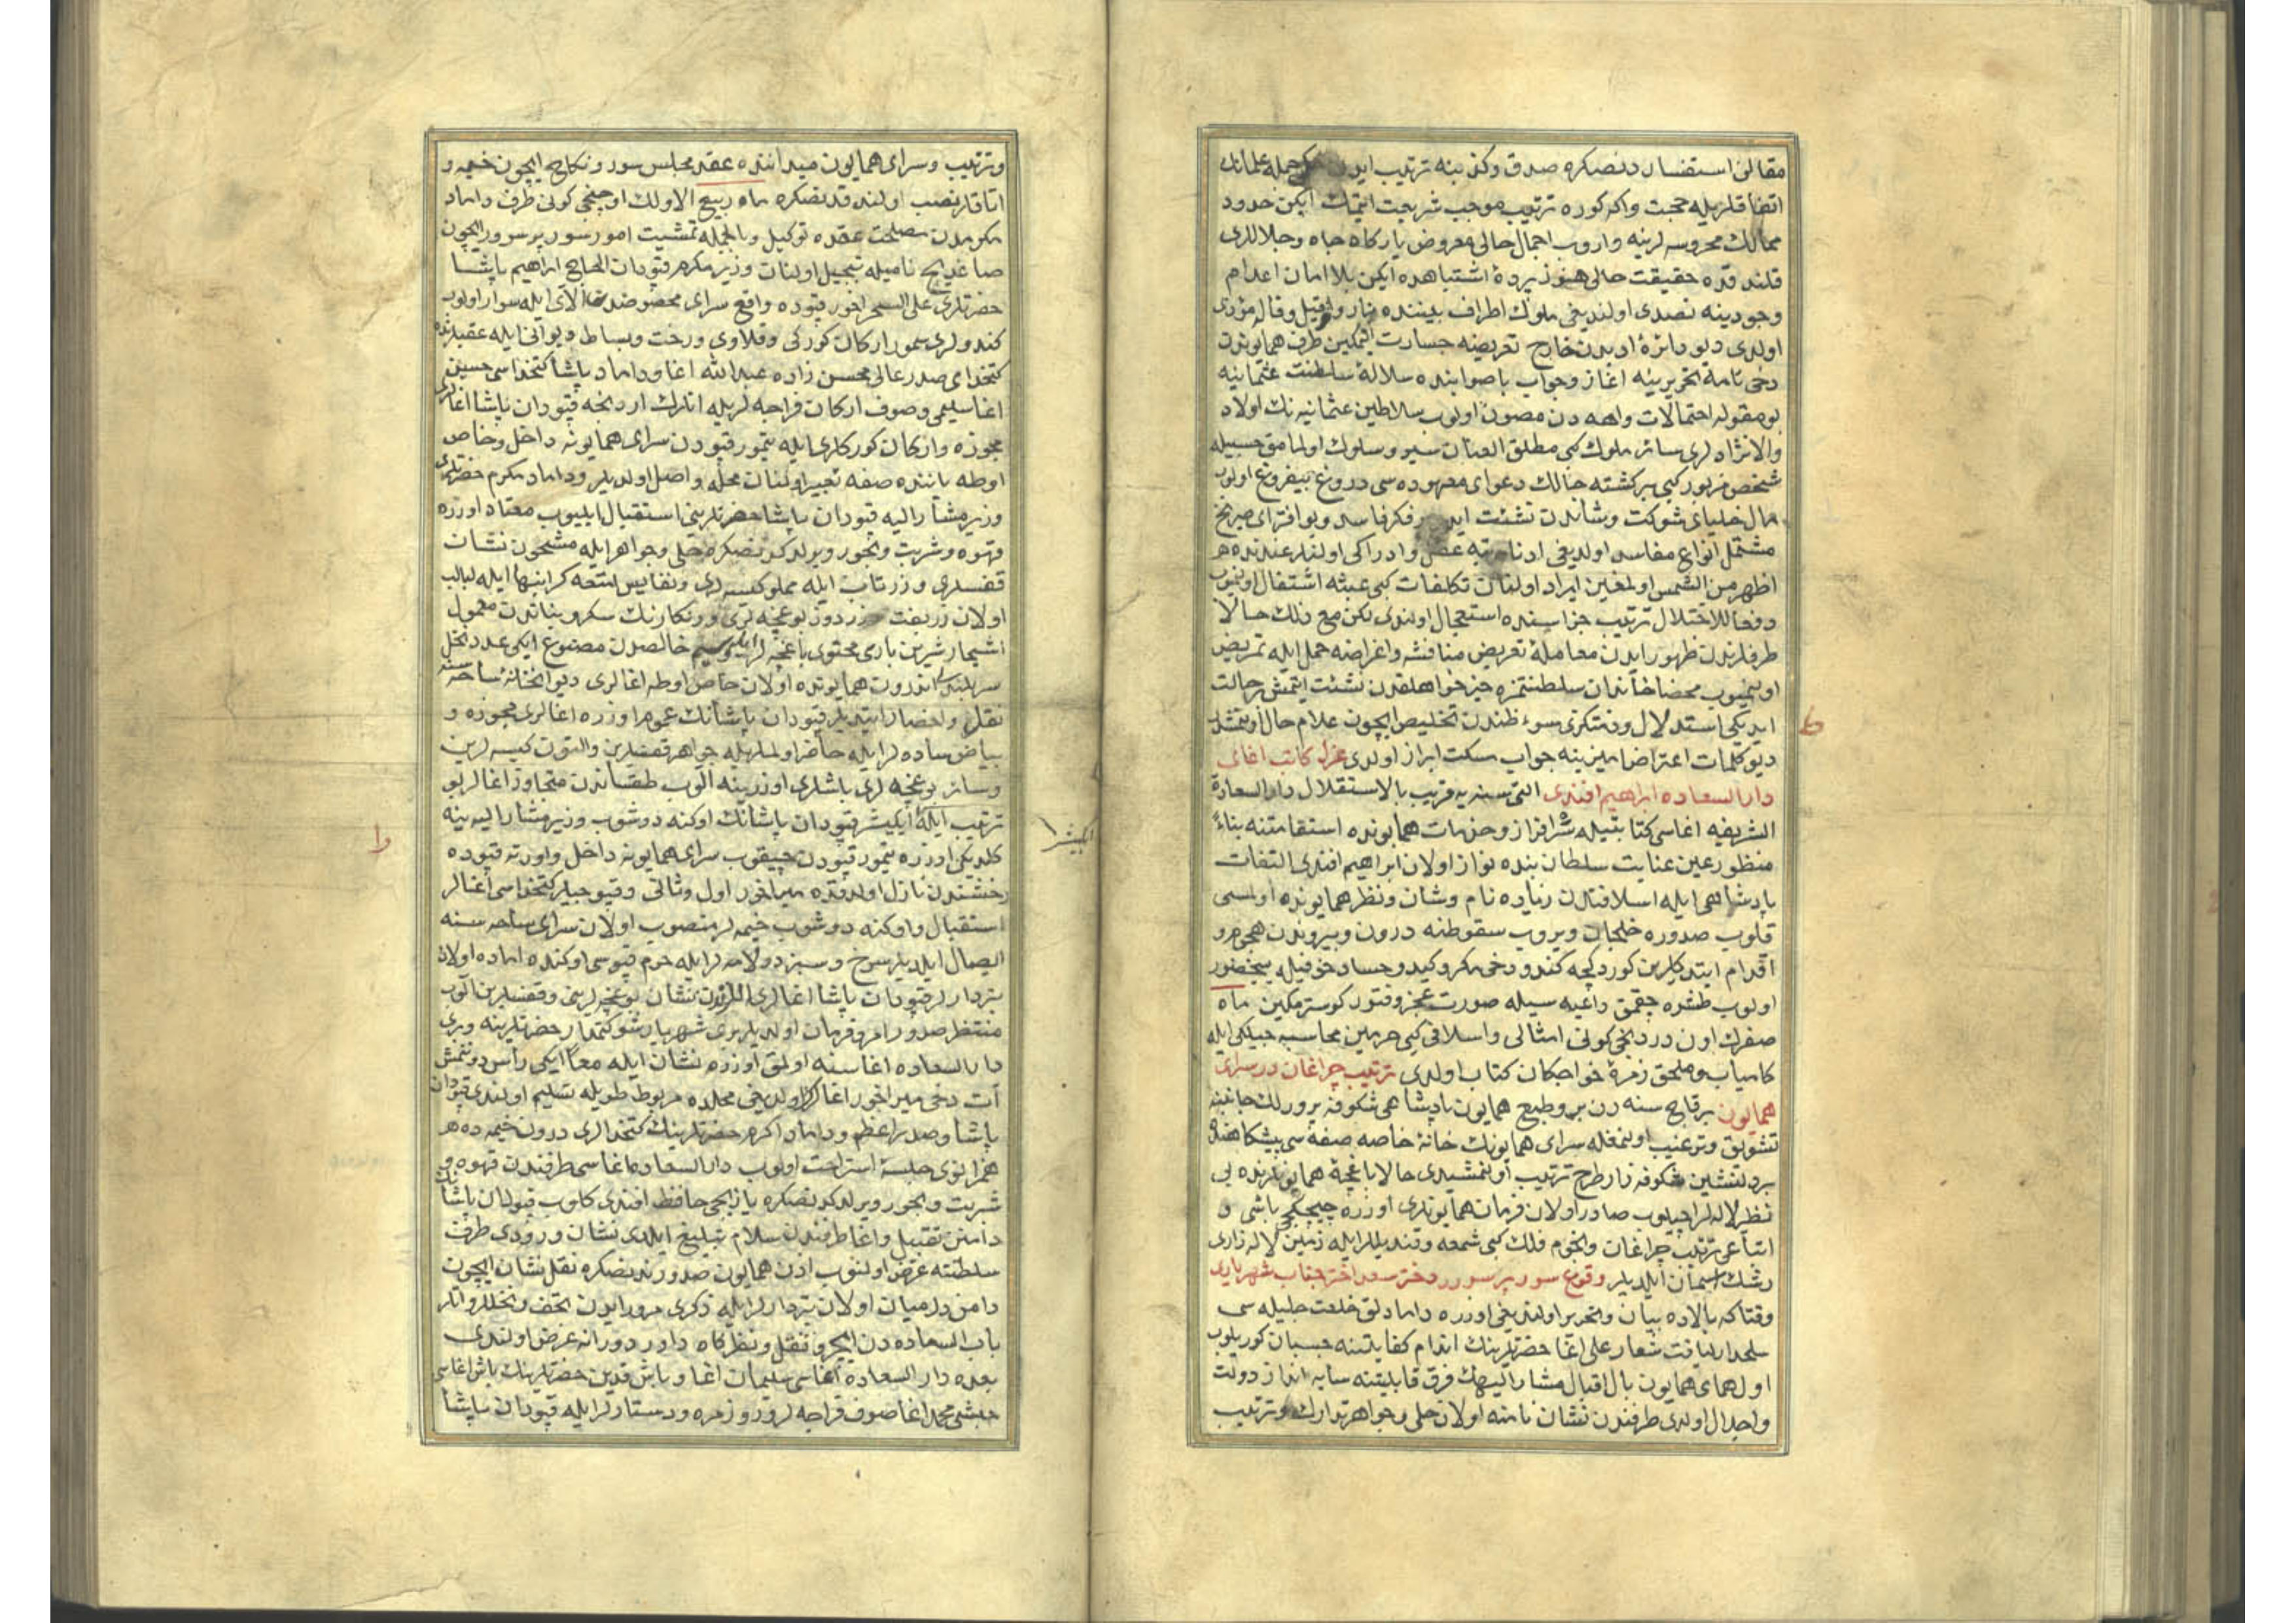 مقالن استفسار دنصكره صدق وكذبنه ترتيب ايدن جمله علمانك
اتفاقلريله حجت واكه كوره ترتيب موجب شريعت ايتمك ايكن حدود
ممالك محروسه لرينه واروب اجمال حالى معروض باركاه جاه وجلاللرى
قلندقده حقيقت حالى هنوز پرده اشتباهده ايكن بلا امان اعدام
وجودينه تصدى اولنديغى ملوك اطراف بيننده قيل وقاله مؤدى
اولدى ديو دائرهٔ ادبدن خارج تعريضه جسارت ايتمكين طرف همايوندن
دخى نامه تحريرينه اغاز وجواب باصوابنده سلالهٔ سلطنت عثمانيه
بو مقوله احتمالات واهيه دن مصون اولوب سلاطين عثمانيه نك اولاد
والانژادلرى سائر ملوك كبى مطلق العنان سير وسلوك اولمامق حسبيله
شخص مزبور كبى سركشته حالك دعواى معهوده سى دروغ بيفروغ اولوب
مال خلياى شوكت وشاندن نشئت ايدن فكر فاسد وبو افتراى صريح
مشتمل انواع مفاسد اولديغى ادنا مرتبه عقل وادراكى اولنلر عندنده
اظهر من الشمس اولمغين ايراد اولنان تكلفات كبى عبثه اشتغال اولنيوب
دفعا للاختلال ترتيب جزاسنده استعجال اولندى لكن مع ذلك حالا
طرفلرندن ظهور ايدن معاملهٔ تعريض مناقشه واغراضه حمل ايله تمريض
اولنميوب محضا خاندان سلطنتمزه خيرخواهلقدن نشئت ايتمش حالت
ايديكى استدلال وذمتكزى سوء ظندن تخليص ايچون علام حال اولنمشدر
ديو كلمات اعتراض اميزينه جواب مسكت ابراز اولدى عزل كاتب اغاى
دار السعاده ابراهيم افندى التى سنه يه قريب بالاستقلال دار السعادة
الشريفه اغاسى كتابتيله سرافراز وخدمات همايونده استقامتنه بناءً
منظور عين عنايت سلطان بنده نواز اولان ابراهيم افندى التفات
پادشاهى ايله اسلافندن زياده نام وشان ونظر همايونده اولمسى
قلوب صدوره خلجان ويروب سقوطنه درون وبيروندن هجوم و
اقدام ايتدكلرين كوردكچه كندو دخى مكر وكيد وحساد خوفيله بيحضور
اولوب طشره چقمق داعيه سيله صورت عجز وفتور كوسترمكين ماه
صفرك اون دردنجى كونى امثالى واسلافى كبى حرمين محاسبه جيلكى ايله
كامياب وملحق زمرهٔ خواجكان كتاب اولدى ترتيب چراغان در سراى
همايون برقاچ سنه دن برو طبع همايون پادشاهى شكوفه پرورلك جانبنه
تشويق وترغيب اولنمغله سراى همايونك خانهٔ خاصه صفه سى پيشكاهنده
بر دلنشين شكوفه زار طرح وترتيب اولنمشيدى حالا باغچهٔ همايونلرنده بى
نظير لاله لر اچيلوب صادر اولان فرمان همايونلرى اوزره چيچكجى باشى و
اتباعى ترتيب چراغان ونجوم فلك كبى شمعه وقنديللر ايله زمين لاله زارى
رشك اسمان ايلديلر وقوع سور پرسرور دختر سعد اختر جناب شهريارى
وقتاكه بالاده بيان وتحرير اولنديغى اوزره دامادلق خلعت جليله سى
سلحدار لياقت شعار على اغا حضرتلرينك اندام كفايتنه چسبان كوريلوب
اول هماى همايون بال اقبال مشار اليهك فرق قابليتنه سايه انداز دولت
واجلال اولدى طرفندن نشان نامنه اولان حلى وجواهر تدارك وترتيب
وترتيب وسراى همايون ميداننده عقد مجلس سور ونكاح ايچون خيمه و
اتاقلر نصب اولندقدنصكره ماه ربيع الاولك اوچنجى كونى طرف داماد
مكرمدن مصلحت عقده توكيل وبالجمله تمشيت امور سور پرسرور ايچون
صاغديج ناميله تبجيل اولنان وزير مكرم قپودان الحاج ابراهيم پاشا
حضرتلرى على السحر اخور قپوده واقع سراى محضوصندن الاى ايله سوار اولوب
كندولرى سمور اركان كوركى وقلاوى ورخت وبساط ديوانى ايله عقبلرنده
كتخداى صدر عالى محسن زاده عبد الله اغا وداماد پاشا كتخداسى حسين
اغا سليمى وصوف اركان فراجه لريله انلرك اردنجه قپودان پاشا اغالرى
مجوزه واركان كوركلرى ايله تيمور قپودن سراى همايونه داخل وخاص
اوطه ياننده صفه تعبير اولنان محله واصل اولديلر وداماد مكرم حضرتلرى
وزير مشار اليه قپودان پاشا حضرتلرينى استقبال ايليوب معتاد اوزره
قهوه وشربت وبخور ويرلدكدنصكره حلى وجواهر ايله مشحون نشان
قفسلرى وزر ناب ايله مملو كيسه لرى ونفايس امتعه كرانبها ايله لبالب
اولان زربفت وزردوز بوغچه لرى ورنكارنك سكر وبناتدن معمول
اشجار شيرين بارى محتوى باغچه لر ايله وسيم خالصدن مصنوع ايكى عدد نخل
سربلند اندرون همايونده اولان خاص اوطه اغالرى ديوانخانه ساحه سنه
نقل واحضار ايتديلر قپودان پاشانك عموم اوزره اغالرى مجوزه و
بياض ساده لر ايله حاضر اولملريله جواهر قفسلرين والتون كيسه لرين
وسائر بوغچه لرى باشلرى اوزرينه الوب طقساندن متجاوز اغالر بو
ترتيب ايله ايكيشر قپودان پاشانك اوكنه دوشوب وزير مشار اليه ينه
كلديكى اوزره تيمور قپودن چيقوب سراى همايونه داخل واورته قپوده
رخشندن نازل اولدقده ميراخور اول وثانى وقپوجيلر كتخداسى اغالر
استقبال واوكنه دوشوب خيمه لر منصوب اولان سراى ساحه سنه
ايصال ايلديلر سرخ وسبز دولامه لر ايله حرم قپوسى اوكنده اماده اولان
تبردارلر قپودان پاشا اغالرى اللرندن نشان بوغچه لرينى وقفسلرين الوب
منتظر صدور امر وفرمان اولديلر برى شهريار شوكتمدار حضرتلرينه وبرى
دار السعاده اغاسنه اولمق اوزره نشان ايله معا ايكى رأس دوننمش
آت دخى ميراخور اغالر اولديغى محلده مربوط طويله تسليم اولندى قپودان
پاشا وصدر اعظم وداماد اكرم حضرتلرينك كتخدالرى درون خيمه ده
همزانوى جلسهٔ استراحت اولوب دار السعاده اغاسى طرفندن قهوه و
شربت وبخور ويرلدكدنصكره يازيجى حافظ افندى كلوب قپودان پاشانك
دامنن تقبيل واغا طرفندن سلام تبليغ ايلدى نشان ورودى طرف
سلطنته عرض اولنوب اذن همايون صدورندنصكره نقل نشان ايچون
دامن درميان اولان تبردارلر ايله ذكرى مرور ايدن تحف ونخللر وانلر
باب السعاده دن ايچرو نقل ونظركاه داور دورانه عرض اولندى
بعده دار السعاده اغاسى سليمان اغا وباش قدين حضرتلرينك باش اغاسى
حبشى محمد اغا صوف فراجه لر وزمره ودستارلر ايله قپودان پاشا
ايكيشر